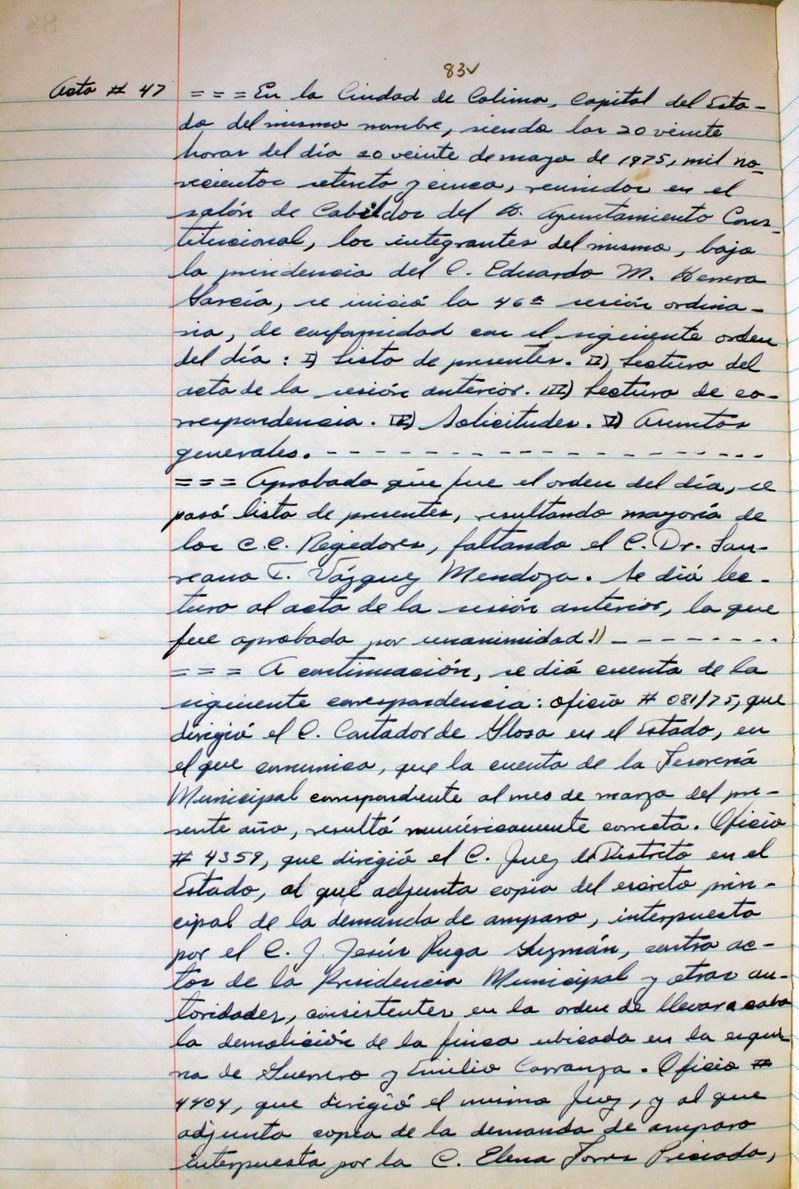 83v
Acta # 47
= = = En la Ciudad de Colima, Capital del Esta-
do del mismo nombre, siendo las 20 veinte
horas del día 20 veinte de mayo de 1975, mil no-
vecientos setenta y cinco, reunidos en el
salón de Cabildos del H. Ayuntamiento Cons-
titucional, los integrantes del mismo, bajo
la presidencia del C. Eduardo M. Herrera
García, se inició la 46a sesión ordina-
ria, de conformidad con el siguiente orden
del día: I) Lista de presentes. II) Lectura del
acta de la sesión anterior. III) Lectura de co-
rrespondencia. IV) Solicitudes. V) Asuntos
generales. - - - - - - - - - - - - - - - - - -
= = = Aprobado que fue el orden del día, se
pasó lista de presentes, resultando mayoría de
los C.C. Regidores, faltando el C. Dr. Lau-
reano T. Vázquez Mendoza. Se dió lec-
tura al acta de la sesión anterior, la que
fue aprobada por unanimidad. - - - - - - - -
= = = A continuación, se dió cuenta de la
siguiente correspondencia: oficio # 081/75, que
dirigió el C. Contador de Glosa en el Estado, en
el que comunica, que la cuenta de la Tesorería
Municipal correspondiente al mes de marzo del pre-
sente año, resultó numéricamente correcta. Oficio
# 4359, que dirigió el C. Juez de Distrito en el
Estado, al que adjunta copia del escrito prin-
cipal de la demanda de amparo, interpuesta
por el C. J. Jesús Puga Guzmán, contra ac-
tos de la Presidencia Municipal y otras au-
toridades, consistentes en la orden de llevar a cabo
la demolición de la finca ubicada en la esqui-
na de Guerrero y Emilio Carranza. Oficio #
4404, que dirigió el mismo Juez, y al que
adjunta copia de la demanda de amparo
interpuesta por la C. Elena Torres Preciado,